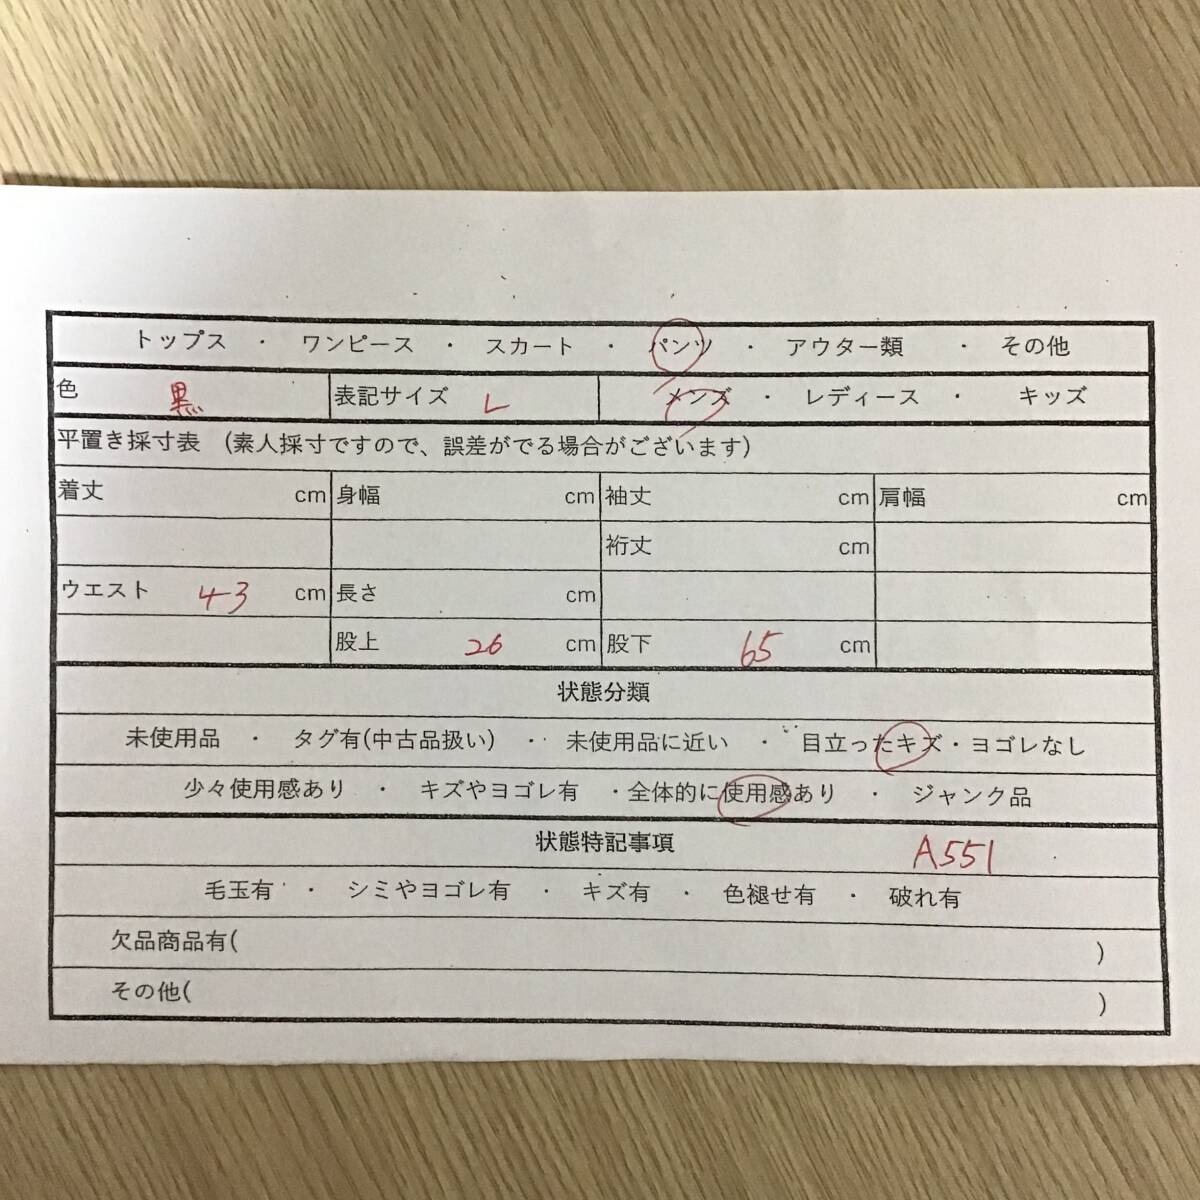 トップス ・ ワンピース ・ スカート ・ パンツ ・ アウター類 ・ その他
色 黒 表記サイズ L メンズ ・ レディース ・ キッズ
平置き採寸表 (素人採寸ですので、誤差がでる場合がございます)
着丈 cm 身幅 cm 袖丈 cm 肩幅 cm
裄丈 cm
ウエスト 43 cm 長さ cm
股上 26 cm 股下 65 cm
状態分類
未使用品 ・ タグ有(中古品扱い) ・ 未使用品に近い ・ 目立ったキズ・ヨゴレなし
少々使用感あり ・ キズやヨゴレ有 ・全体的に使用感あり ・ ジャンク品
状態特記事項 A551
毛玉有 ・ シミやヨゴレ有 ・ キズ有 ・ 色褪せ有 ・ 破れ有
欠品商品有( )
その他( )